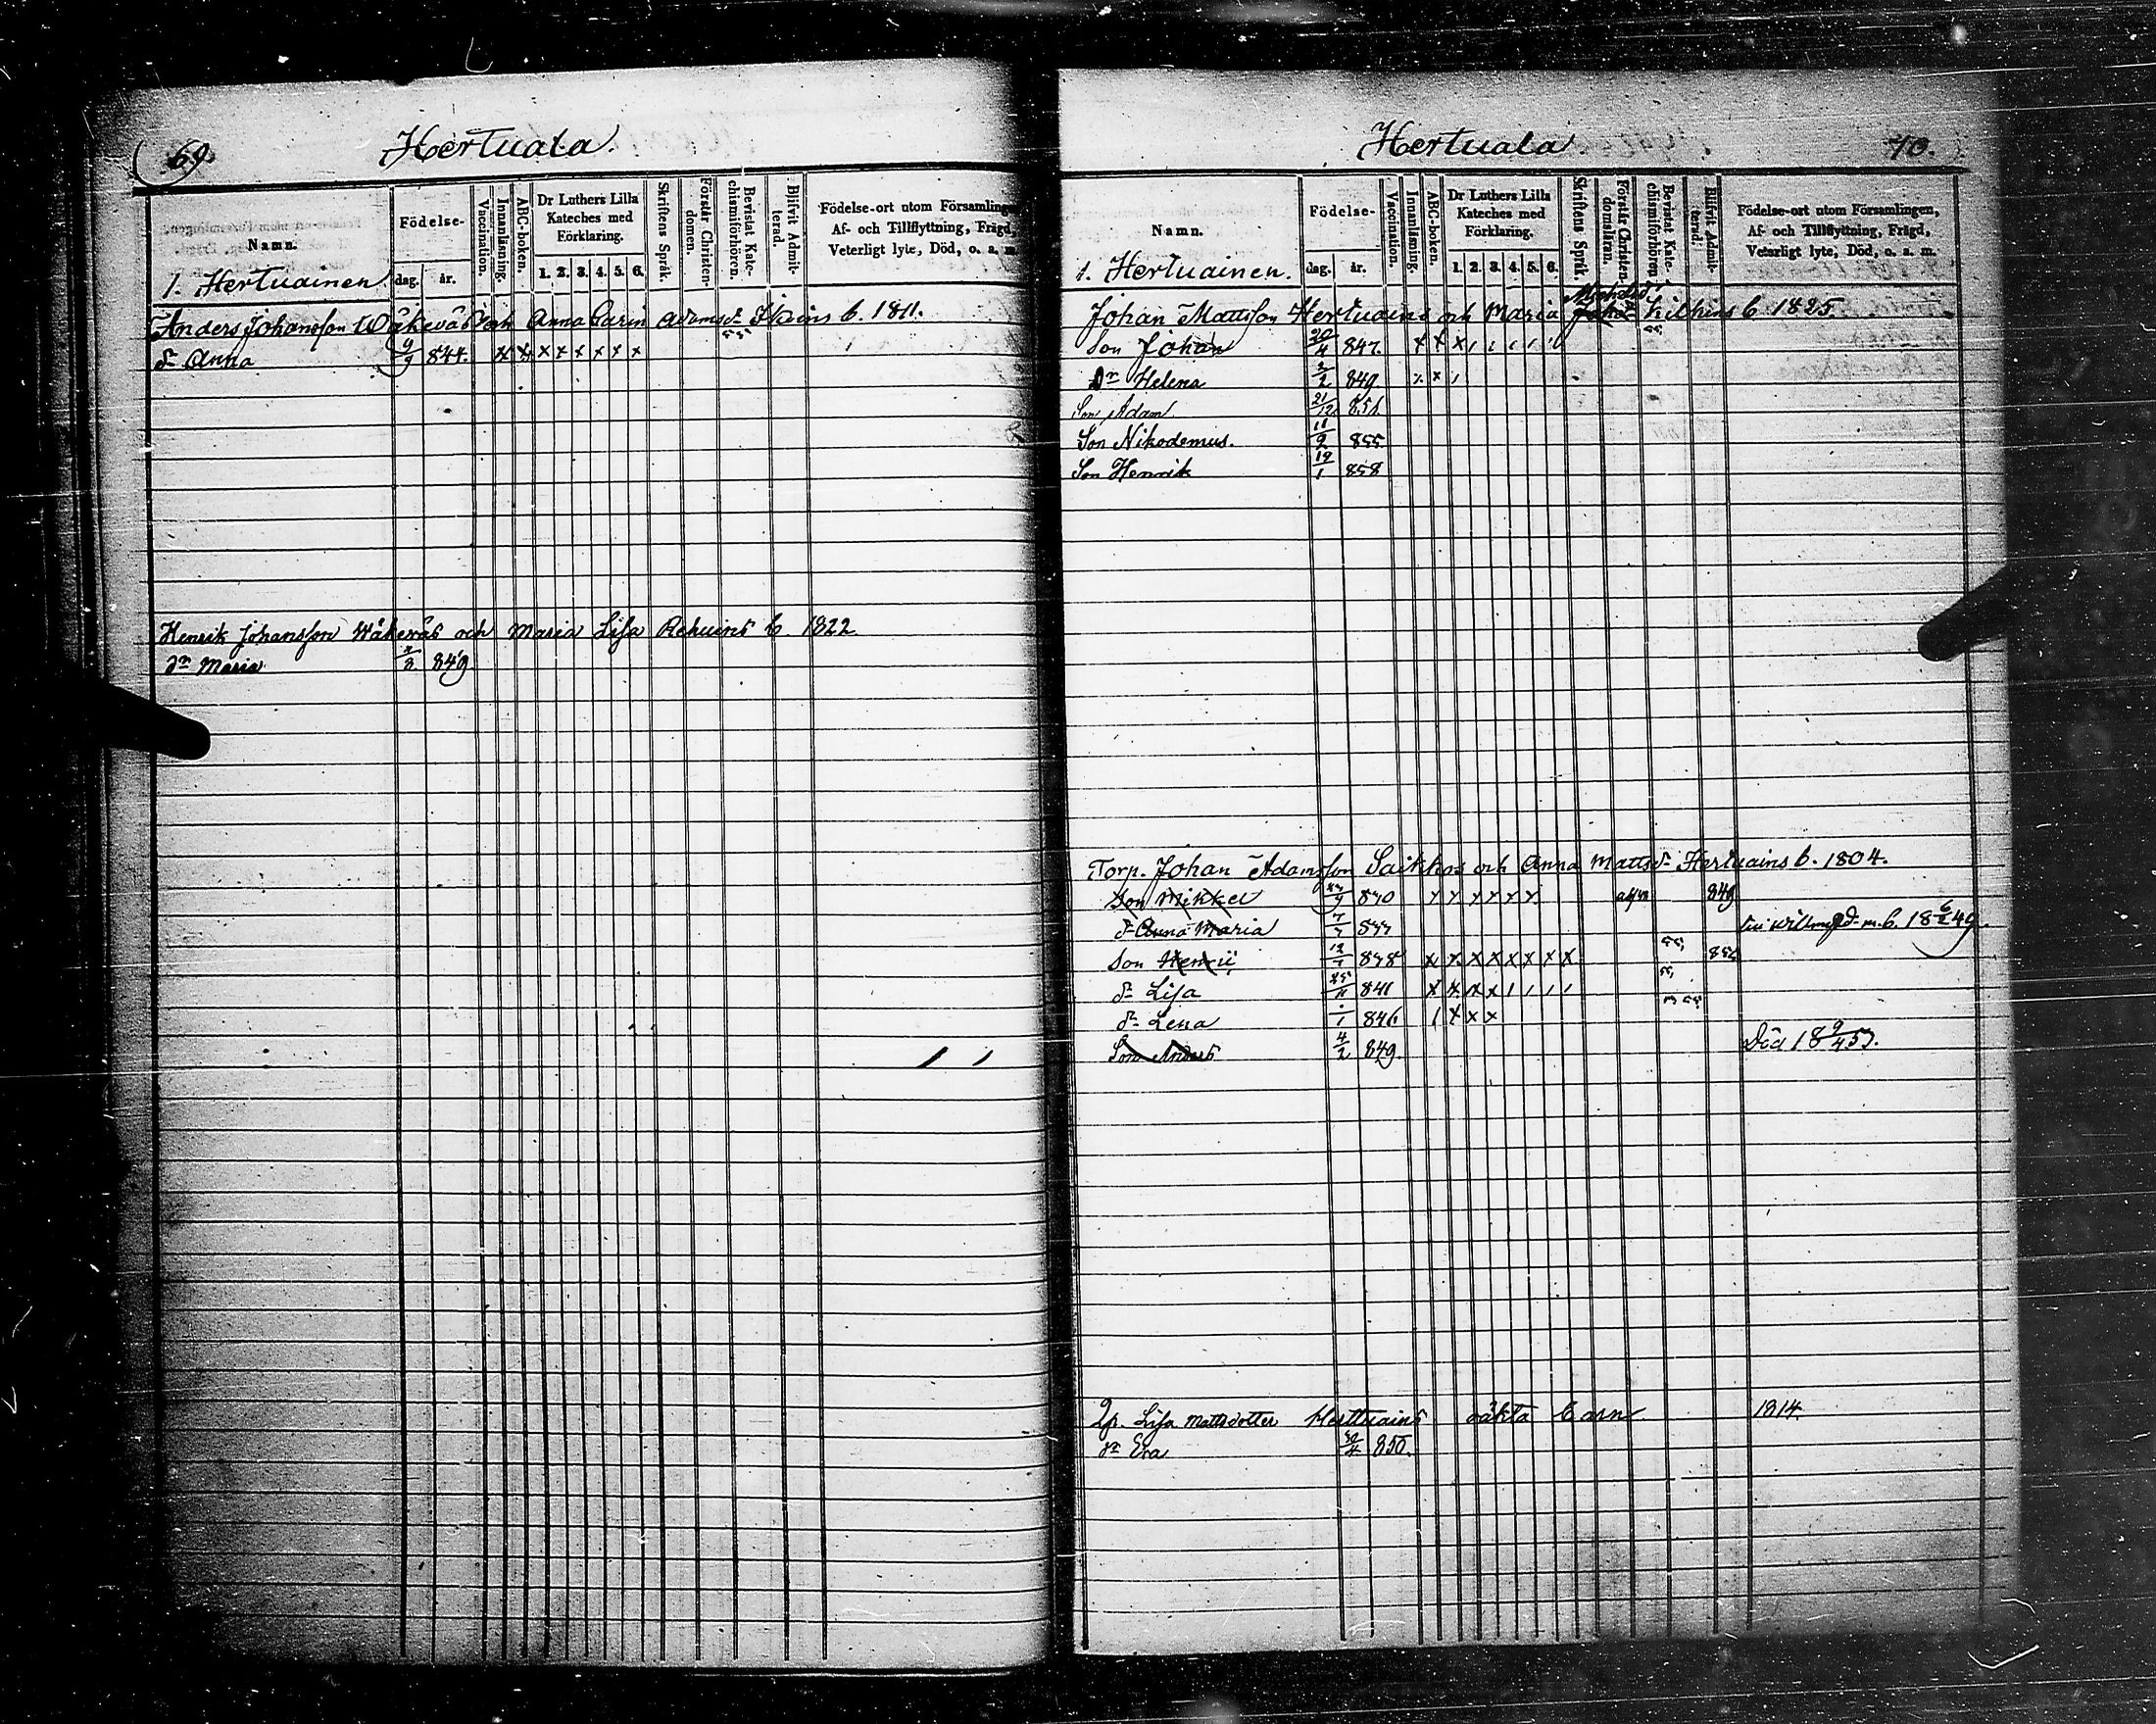 69. Hertuala.
Namn.
Födelse-
dag. år.
Vaccination.
Innanläsning.
ABC-boken.
Dr Luthers Lilla Kateches med Förklaring.
1. 2. 3. 4. 5. 6.
Skriftens Språk.
Förstår Christen-domen.
Bevistat Kate-chismiförhören.
Blifvit Admit-terad.
Födelse-ort utom Församlingen
Af- och Tillflyttning, Frägd,
Veterligt lyte, Död, o. a. m.
1. Hertuainen
Anders Johansson Wäkeväs och Anna Carin Adamsdr b. 1811.
dr Anna 9/9 844. x x x x x x x x
Henrik Johansson Wäkeväs och Maria Lisa Rehuins b. 1822
dr Maria 849
Hertuala 70.
Namn.
Födelse-
dag. år.
Vaccination.
Innanläsning.
ABC-boken.
Dr Luthers Lilla Kateches med Förklaring.
1. 2. 3. 4. 5. 6.
Skriftens Språk.
Förstår Christen-domsläran.
Bevistat Kate-chismiförhören
Blifvit Admit-terad.
Födelse-ort utom Församlingen,
Af- och Tillflyttning, Frägd,
Vetarligt lyte, Död, o. a. m.
1. Hertuainen.
Johan Mattsson Hertuains och Maria Michelsdr b. 1825
Son Johan 20/4 847. x x x
Dr Helena 2/2 849
Son Adam 21/12 851
Son Nikodemus. 11/9 855
Son Henrik 19/1 858
Torp. Johan Adamsson Saikkos och Anna Mattsdr Hertuains b. 1804.
Son Mikkel 849
dr Anna Maria b. 18 6/2 49.
Son 838 x x x x x x x x
dr Lisa 841 x x x x
dr Lena 1/1 846 x x x
Son Anders 4/2 849. Död 18 9/4 57.
Lisa Mattsdotter Herttuains oäkta barn 1814.
dr Eva 850.